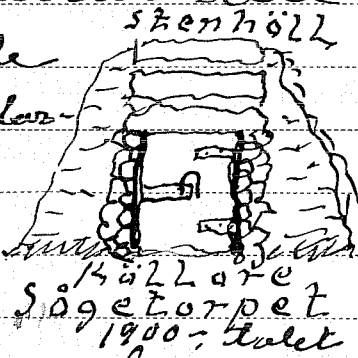 stenhäll
Källare
Sågetorpet
1900-talet